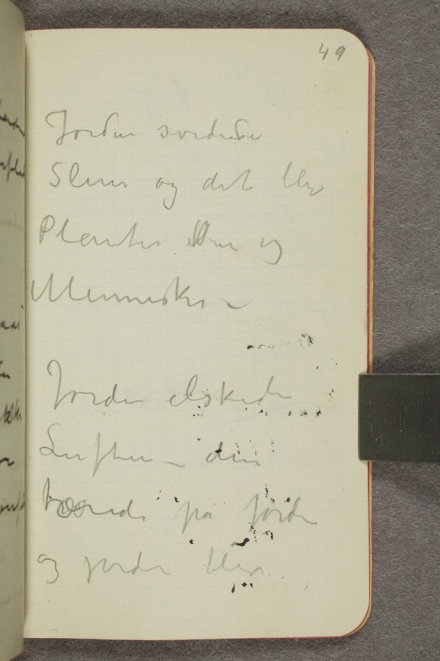 49
Jorden svedede
Slim og det blev
Planter Dyr og
Mennesker –
Jorden elskede
Luften – den
tærede på Jorden
og Jorden blev